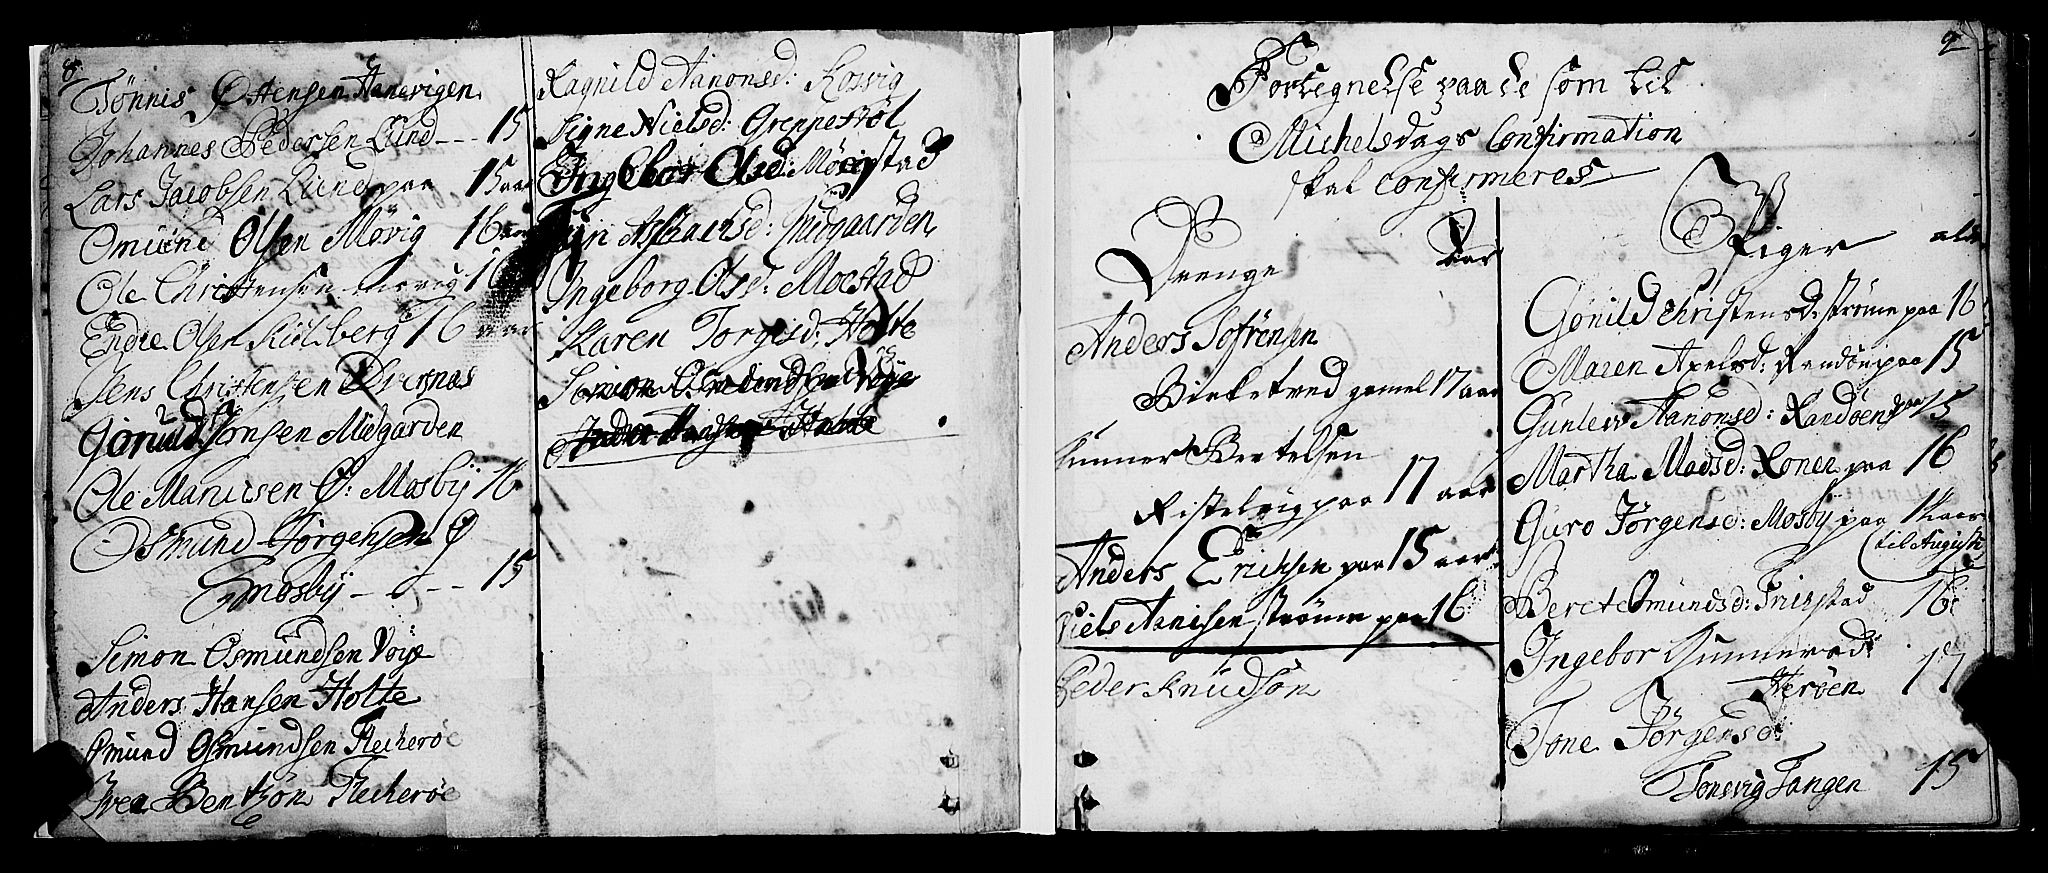 8
Tønnis Østensen Aanevigen
Johannes Pedersen Lund - - - 15
Lars Jacobsen Lund paa 15 aar
Omund Olsen Møvig 16 aar
Ole Christensen møvig 16
Endre Olsen Kielberg 16 aar
Jens Christensen Dversnæs
Gorund Jonsen Midgarden
Ole Mariusen Ø: Mosby 16
Osmund Jørgensen Ø
Mosby - - - 15
Simon Osmundsen Voÿe
Anders Hansen Holte
Omund Osmundsen Flecherøe
Iver Bentzøn Flecherøe
Ragnild Aanonsd: Kosvig
Signe Nielsd: Greppestøl
Ingebor Olsd: Møestad
Asbaarsd: Hudgaarden
Ingeborg Olsd: Moestad
Karen Torgesd: Holte
Simon Osmundsen Voÿe
Anders Hansen Holte
9
Fortegnelse paa de som til
Michelsdags Confirmation
skal confirmeres
Drenge Aar
Anders Sofrensen
Birketved gamel 17 aar
Gunner Bertelsen
Kistelvig paa 17 aar
Anders Erichsen paa 15 aar
Niels Aanisen strøme paa 16
Peder Knudsøn
Piger alder
Gonild Christensd: strøme paa 16
Maren Axelsd: Randøen paa 15
Gunlew Aanonsd: Randøen paa 15
Martha Madsd: Ronen paa 16
Guro Jørgensd: Mosby paa 15 aar
(til Augusti
Beret Omundsd: Tridstad 16
Ingebor Gunnersd:
Herøen 17
Tone Jørgensd:
Tonsvig Tangen 15